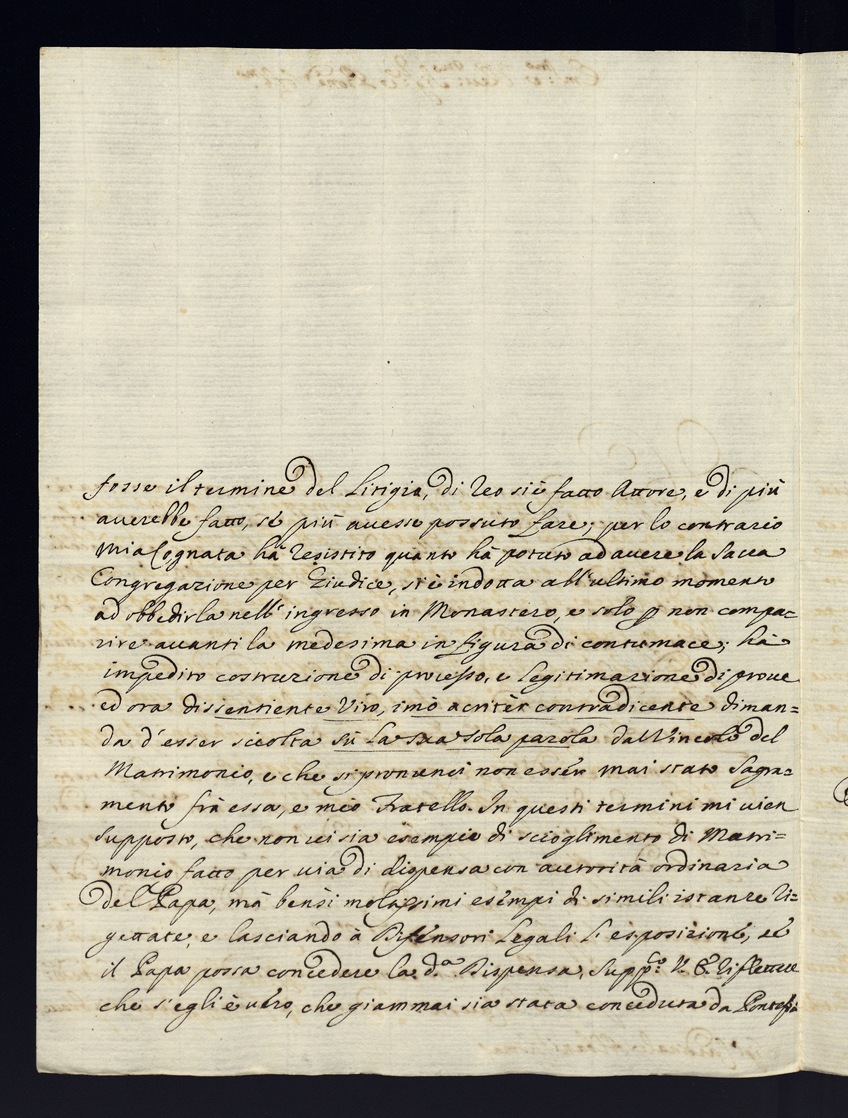 fosse il termine del Litigio, di Reo si è fatto Attore, e di più
averebbe fatto, se più avesse possuto fare; per lo contrario
mia Cognata hà resistito quanto hà potuto ad avere la Sacra
Congregazione per Giudice, si è indotta all'ultimo momento
ad obbedirla nell'ingresso in Monastero, e solo p non compa=
rire avanti la medesima in figura di contumace; hà
impedito costruzione di processo, e Legitimazione di prove
ed ora dissentiente Viro, imò acritèr contradicente diman=
da d'esser sciolta sù la sua sola parola dal Vincolo del
Matrimonio, e che si pronunci non esser mai stato Sagra=
mento frà essa, e mio Fratello. In questi termini mi vien
supposto, che non vi sia esempio di scioglimento di Matri=
monio fatto per via di dispensa con autorità ordinaria
del Papa, mà bensì moltissimi esempi di simili istanze ri=
gettate, e lasciando à Difensori Legali l'esposizione, se
il Papa possa concedere la d.a Dispensa, supp.co V. E. riflettere
che s'egli è vero, che giammai sia stata conceduta da Pontefi